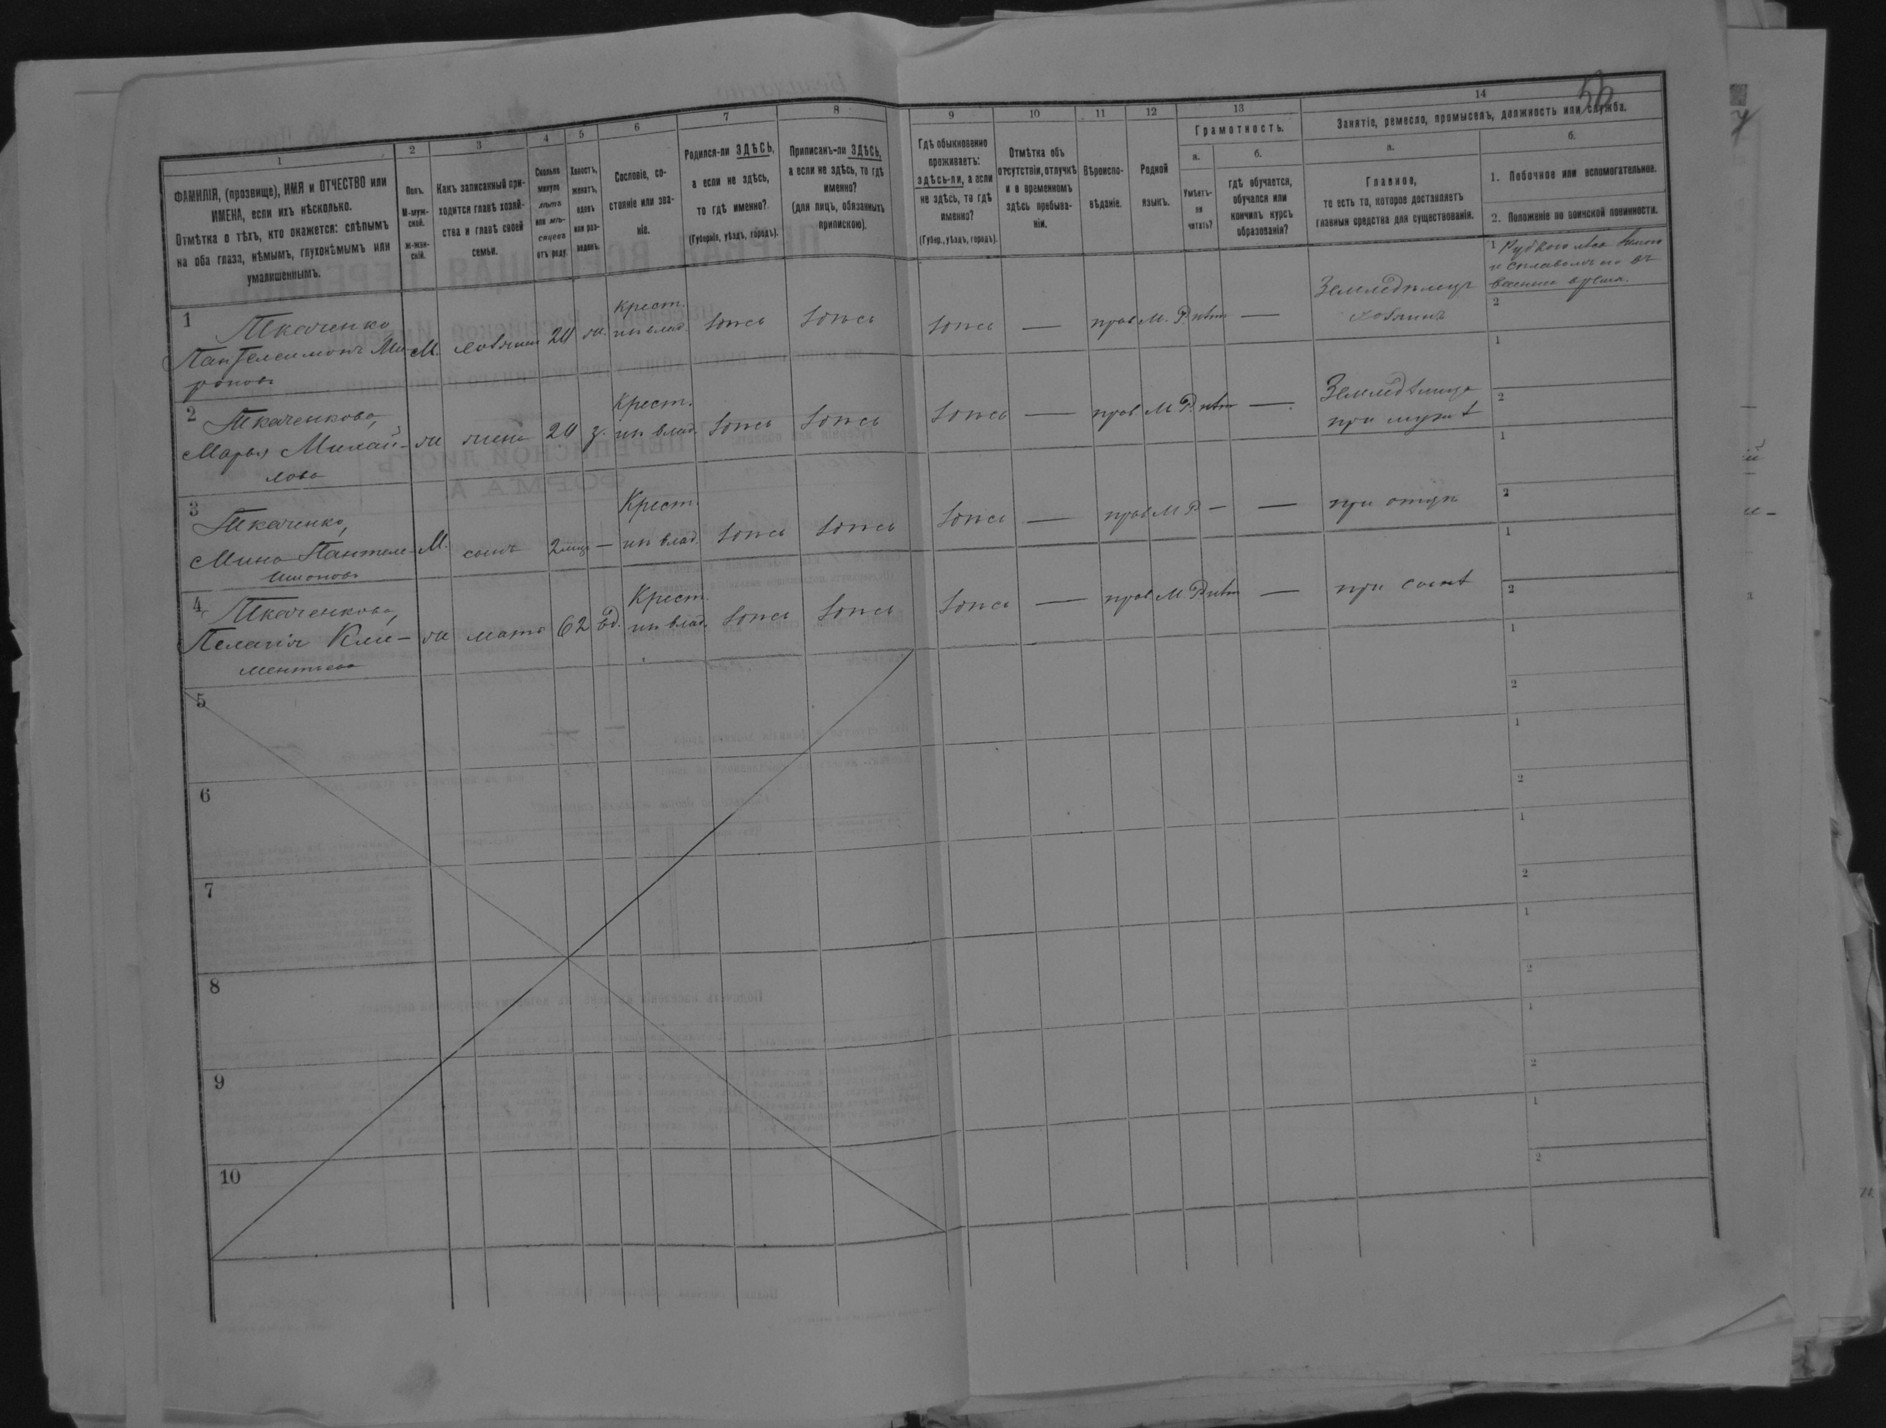 56
1
2
3
4
5
6
7
8
9
10
11
12
13
14
ФАМИЛІЯ, (прозвище), ИМЯ и ОТЧЕСТВО или
ИМЕНА, если ихъ нѣсколько.
Отмѣтка о тѣхъ, кто окажется: слѣпымъ
на оба глаза, нѣмымъ, глухонѣмымъ или
умалишеннымъ.
Полъ.
М-муж-
скій.
ж-жен-
скій.
Какъ записанный при-
ходится главѣ хозяй-
ства и главѣ своей
семьи.
Сколько
минуло
лѣтъ
или мѣ-
сяцевъ
отъ роду.
Холостъ,
женатъ,
вдовъ
или раз-
веденъ.
Сословіе, со-
стояніе или зва-
ніе.
Родился-ли ЗДѢСЬ,
а если не здѣсь,
то гдѣ именно?
(Губернія, уѣздъ, городъ).
Приписанъ-ли ЗДѢСЬ,
а если не здѣсь, то гдѣ
именно?
(для лицъ, обязанныхъ
припискою).
Гдѣ обыкновенно
проживаетъ:
здѣсь-ли, а если
не здѣсь, то гдѣ
именно?
(Губер., уѣздъ, городъ).
Отмѣтка объ
отсутствіи, отлучкѣ
и о временномъ
здѣсь пребыва-
ніи.
Вѣроиспо-
вѣданіе.
Родной
языкъ.
Грамотность.
а.
б.
Умѣетъ-
ли
читать?
гдѣ обучается,
обучался или
кончилъ курсъ
образованія?
Занятіе, ремесло, промыселъ, должность или служба.
а.
б.
Главное,
то есть то, которое доставляетъ
главныя средства для существованія.
1. Побочное или вспомогательное.
2. Положеніе по воинской повинности.
1 Ткаченко
Пантелеимонъ Ми-
роновъ
М. хозяинъ 24 ж. Крест. из влад. здѣсь здѣсь здѣсь — прав М. Р. нѣт —
Земледѣлецъ
хозяинъ
1
2
2 Ткаченкова,
Марья Михай-
лова
ж жена 24 з. Крест. из влад. здѣсь здѣсь здѣсь — прав М Р нѣт —
Земледѣлица
при мужѣ
1
2
3 Ткаченко,
Мина Пантеле-
имоновъ
М. сынъ 2 мѣс — Крест. из влад. здѣсь здѣсь здѣсь — прав М Р — — при отцѣ
1
2
4 Ткаченкова,
Пелагія Кли-
ментьева
ж мать 62 вд. Крест. из влад. здѣсь здѣсь здѣсь — прав М Р нѣт — при сынѣ
1
2
5
1
2
6
1
2
7
1
2
8
1
2
9
1
2
10
1
2